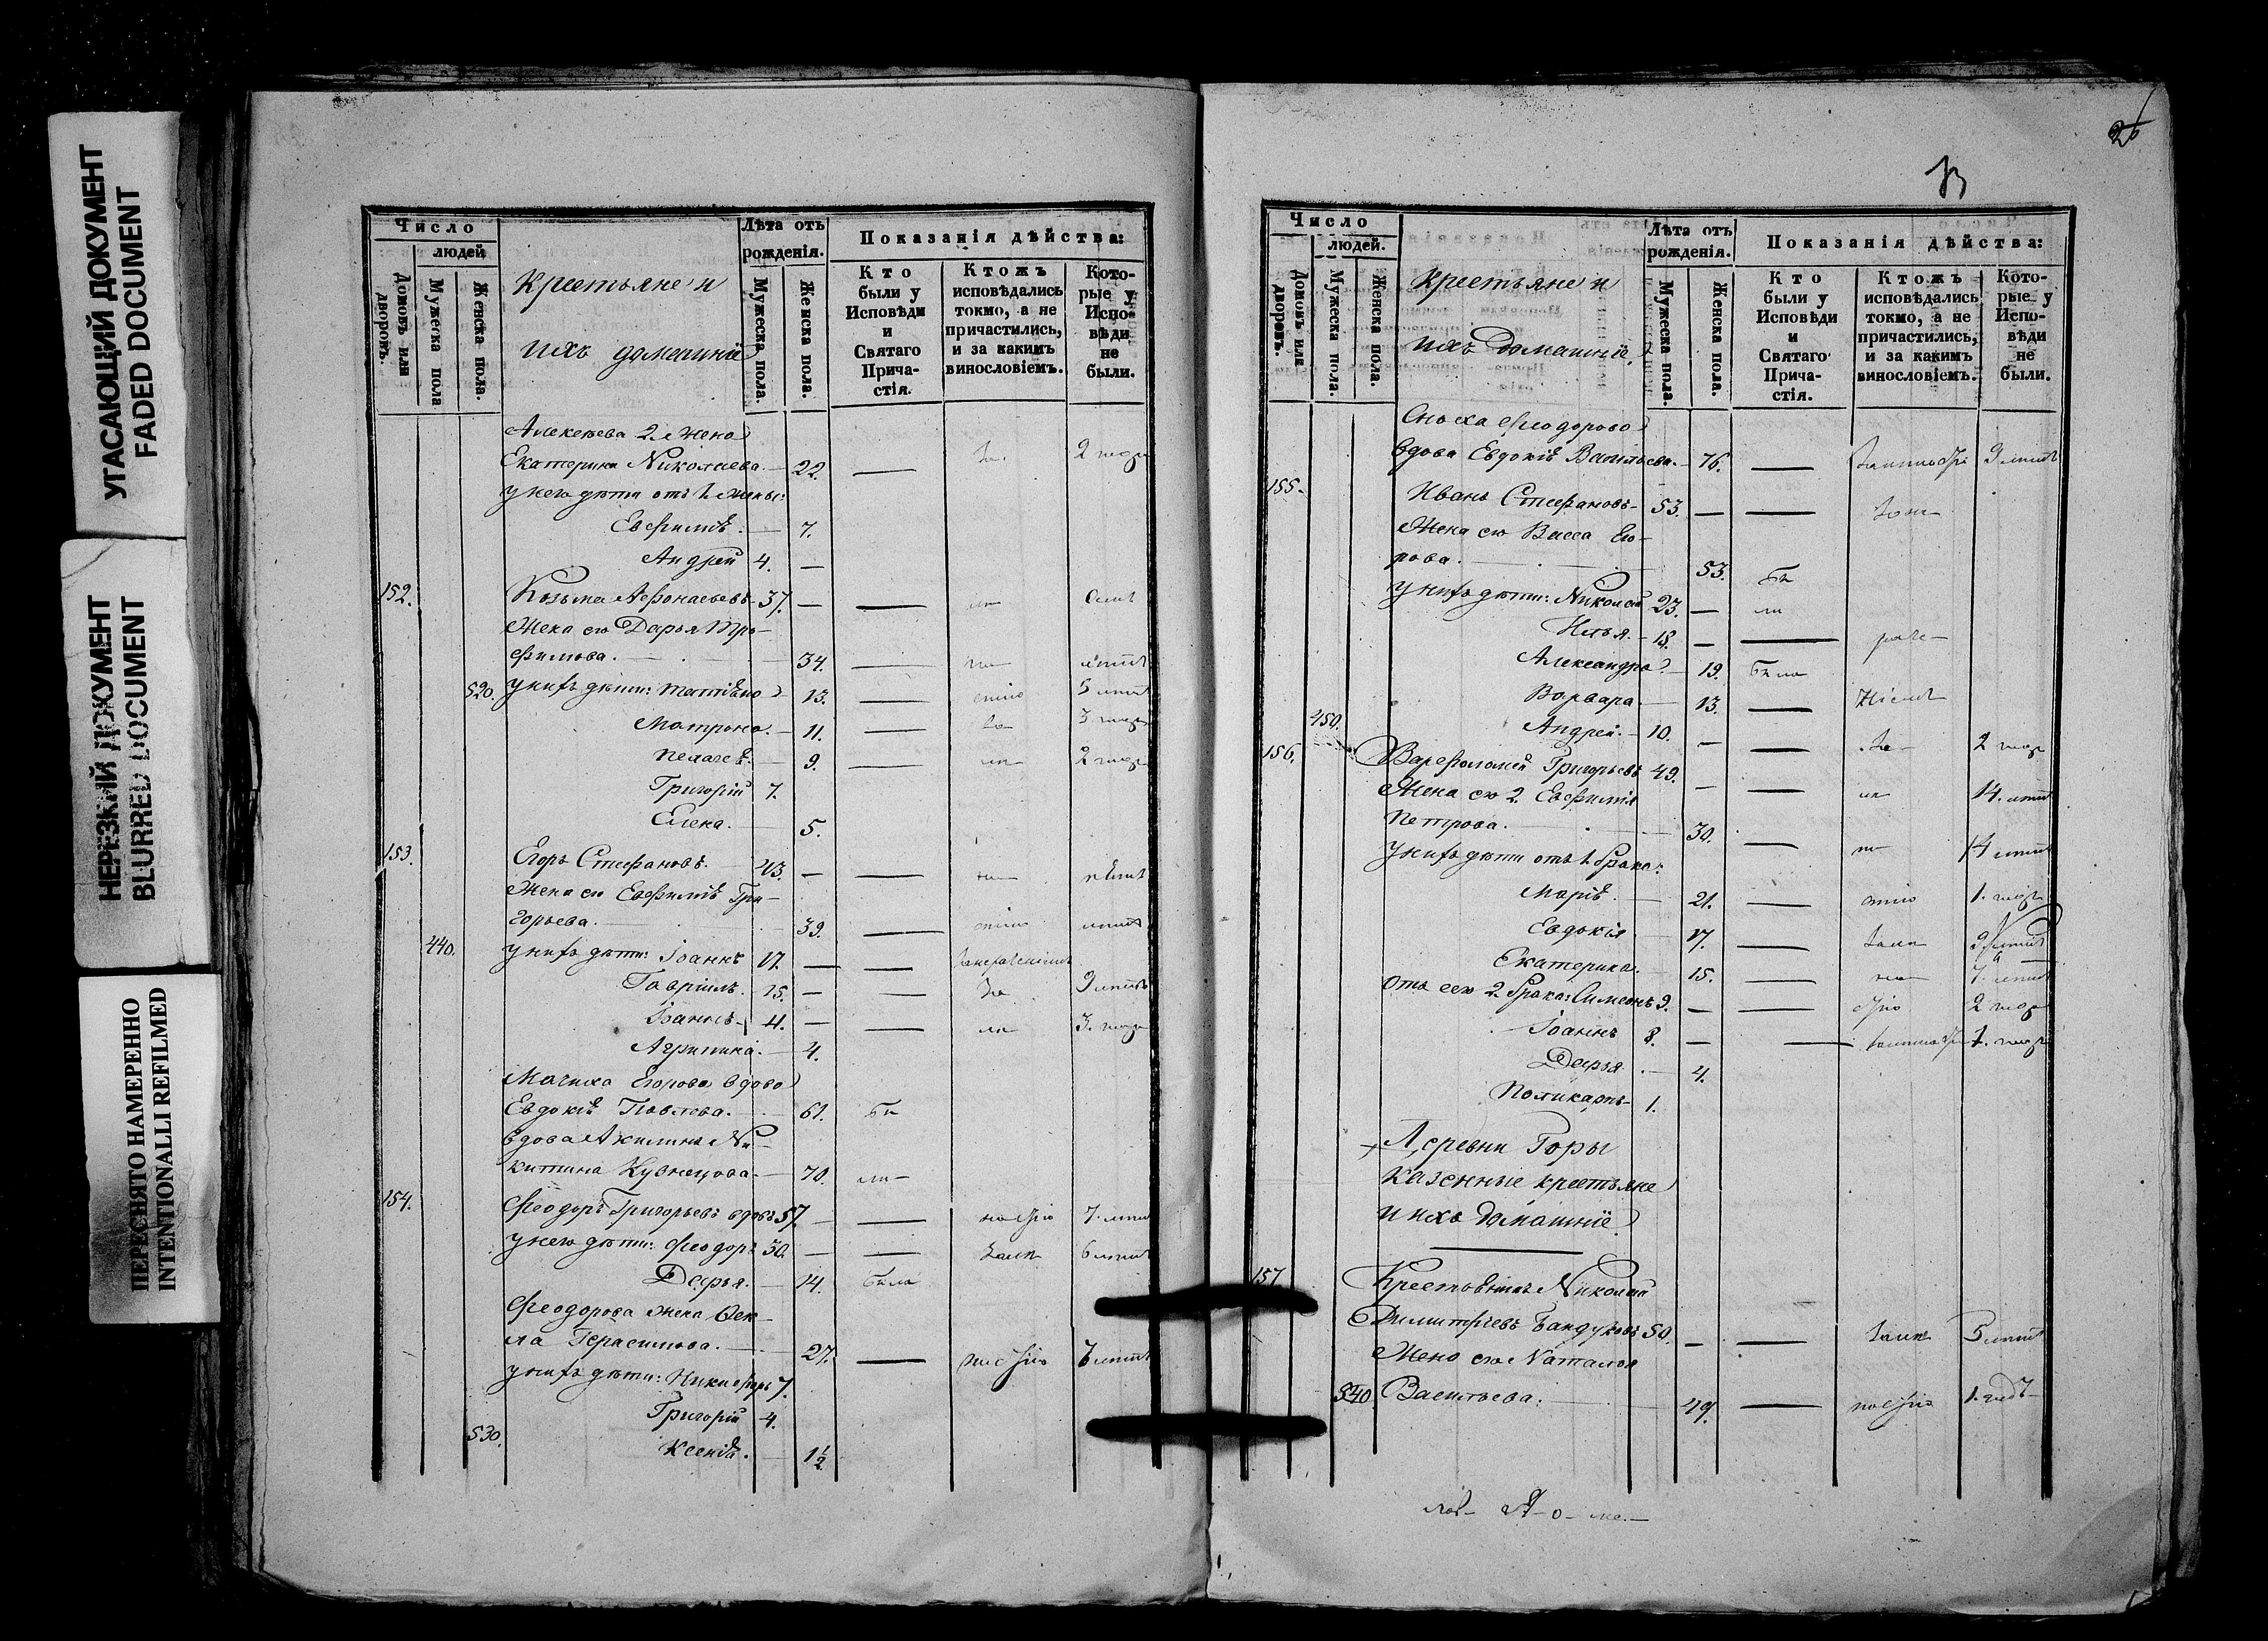 УГАСАЮЩИЙ ДОКУМЕНТ
FADED DOCUMENT
НЕРЕЗКИЙ ДОКУМЕНТ
BLURRED DOCUMENT
ПЕРЕСНЯТО НАМЕРЕННО
INTENTIONALLI REFILMED
Число
людей
Домовъ или дворовъ.
Мужеска пола
Женска пола.
Крестьяне и
ихъ домашніе
Лѣта отъ рожденія.
Мужеска пола.
Женска пола.
Показанія дѣйства:
Кто были у Исповѣди и Святаго Причастія.
Ктожъ исповѣдались токмо, а не причастились, и за какимъ винословіемъ.
Которые у Исповѣди не были.
Алексѣева 2я жена
Екатерина Николаева. 22. 2 года
у него дѣти отъ 1 жены:
Евфимія. 7.
Андрей 4.
152. Козьма Афонасьевъ 37.
Жена его Дарья Тро-
фимова. 34.
520. у нихъ дѣти: Татіана 13. 5 лѣтъ
Матрона. 11. 3 года
Пелагея. 9. 2 года
Григорій 7.
Елена. 5.
153. Егоръ Стефановъ. 43.
Жена его Евфимія Гри-
горьева. 39.
440. у нихъ дѣти: Іоаннъ 17.
Гавріилъ. 15. 9 лѣтъ
Іоаннъ. 4. 3. года
Агрипина. 4.
Мачиха Егорова вдова
Евдокія Павлова. 61.
вдова Акилина Ни-
китина Кузнецова. 70.
154. Феодоръ Григорьевъ вдовъ 57. 7. лѣтъ
у него дѣти: Феодоръ 30. 6 лѣтъ
Дарья. 14. Была
Феодорова жена Фек-
ла Герасимова. 27.
у нихъ дѣти: Никифоръ 7.
Григорій 4.
530. Ксенія. 1½
26
Число
людей.
Домовъ или дворовъ.
Мужеска пола.
Женска пола.
Крестьяне и
ихъ домашніе
Лѣта отъ рожденія.
Мужеска пола.
Женска пола.
Показанія дѣйства:
Кто были у Исповѣди и Святаго Причастія.
Ктожъ исповѣдались токмо, а не причастились, и за какимъ винословіемъ.
Которые у Исповѣди не были.
Сноха Феодорова
вдова Евдокія Васильева. 76.
155. Иванъ Стефановъ 53.
Жена его Васса Его-
рова. 53.
у нихъ дѣти: Николай 23.
Илья. 18.
Александра 19. Была
Варвара. 13.
450. Андрей. 10. 2 года
156. Варфоломей Григорьевъ 49. 14. лѣтъ
Жена его 2. Евфимія
Петрова. 30. 14 лѣтъ
у нихъ дѣти отъ 1 брака:
Марія. 21. 1. года
Евдокія 17.
Екатерина. 15. 7. лѣтъ
отъ сего 2. брака: Симеонъ 9. 2 года
Іоаннъ 8.
Дарья. 4.
Поликарпъ 1.
Деревни Горы
казенные крестьяне
и ихъ домашніе
157. Крестьянинъ Николай
Димитріевъ Бандуковъ 50. 5 лѣтъ
Жена его Наталья
540. Васильева. 49. 1. годъ